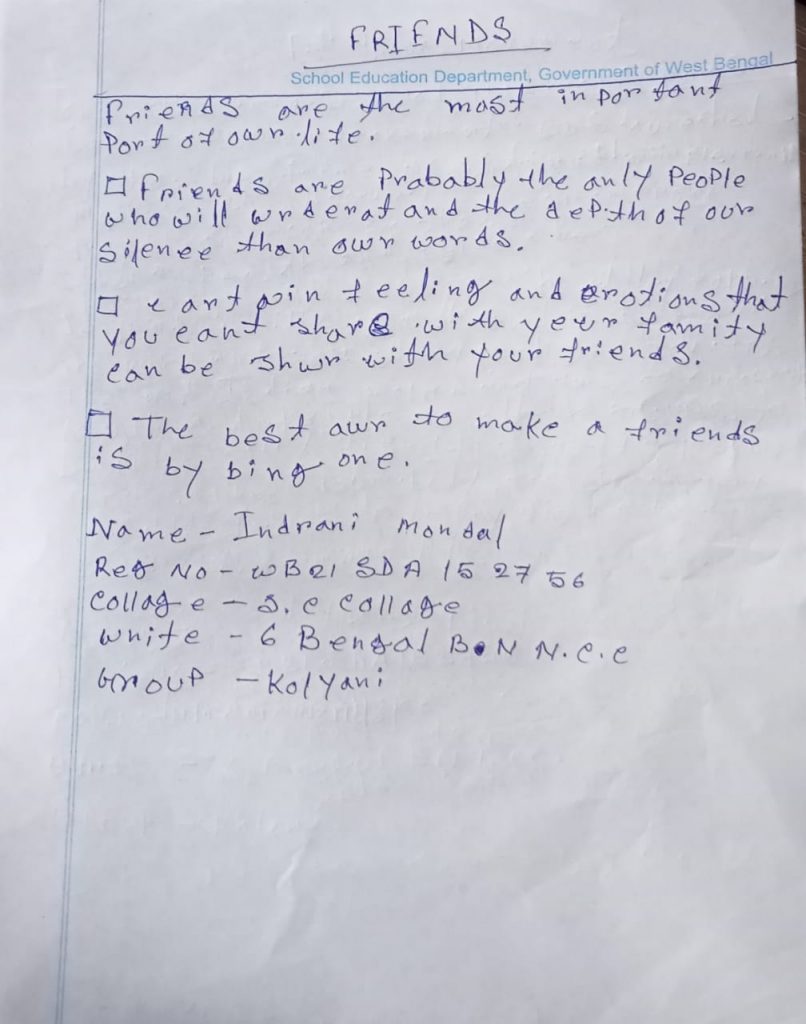 FRIENDS
School Education Department, Government of West Bengal
Friends are the most in por tant
Port of own life.
Friends are Prabably the anly PeoPle
who will wnderstand the depth of our
Silenee than own words.
feeling and erotions that
you eant share with your family
ean be with your friends.
The best awr to make a friends
is by bing one.
Name - Indrani Mondal
Reg No - WB21 SDA 15 27 56
Collage - S. c Collage
Unite - 6 Bengal BoN N.C.C
Group - Kolyani